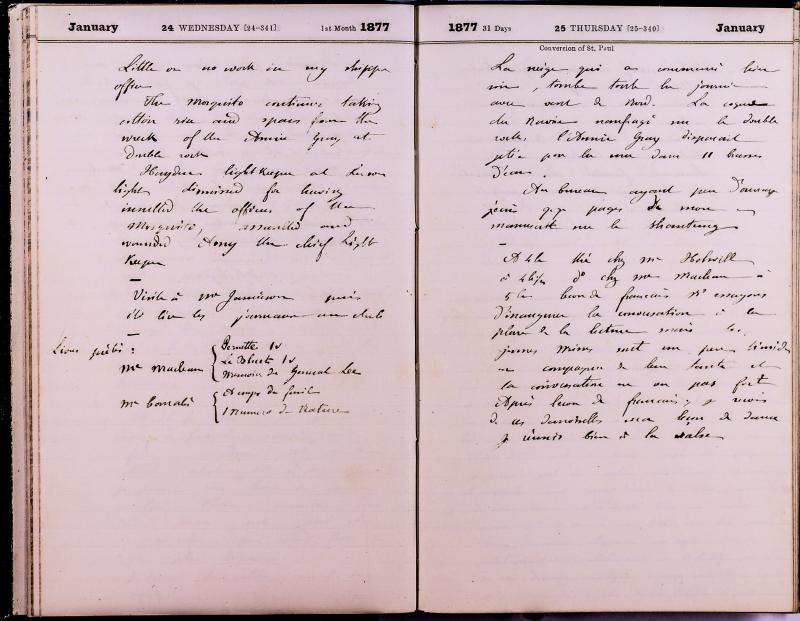 January 24 WEDNESDAY [24-341] 1st Month 1877
Little or no work in my shipping
office
The Mosquito continues taking
cotton and spars from the
wreck of the Annie Gray at
Double rock
Hayden light Keeper at
light dismissed for having
insulted the officers of the
Mosquito, assaulted and
wounded the chief Light
Keeper
—
Visite à Mr Jamieson puis
lire les journaux au club
—
Livres prêtés :
Mr Maclean { Pernette 1v
Le Bleuet 1v
Memoirs de General Lee
Mr { A coups de fusil
1 numero de Nature
1877 31 Days 25 THURSDAY [25-340] January
Conversion of St. Paul
La neige qui a commencé hier
soir, tombe toute la journée
avec vent de Nord. La coque
du Navire naufragé sur le double
rock, l'Annie Gray disparait
jetée par la mer dans 11 brasses
d'eau.
Au bureau ayant peu d'ouvrage
j'écris qq pages de mon
manuscrit sur le Shantung
—
A 4h thé chez Mr
à 4h½ do chez Mr Maclean à
5h leçon de français Ns essayons
d'inaugurer la conversation à la
place de la lecture mais les
jeunes misses sont un peu timides
en compagnie de leur tante et
la conversation ne va pas fort
Après leçon de français, je reçois
de ces demoiselles ma leçon de danse
je réussis bien à la valse